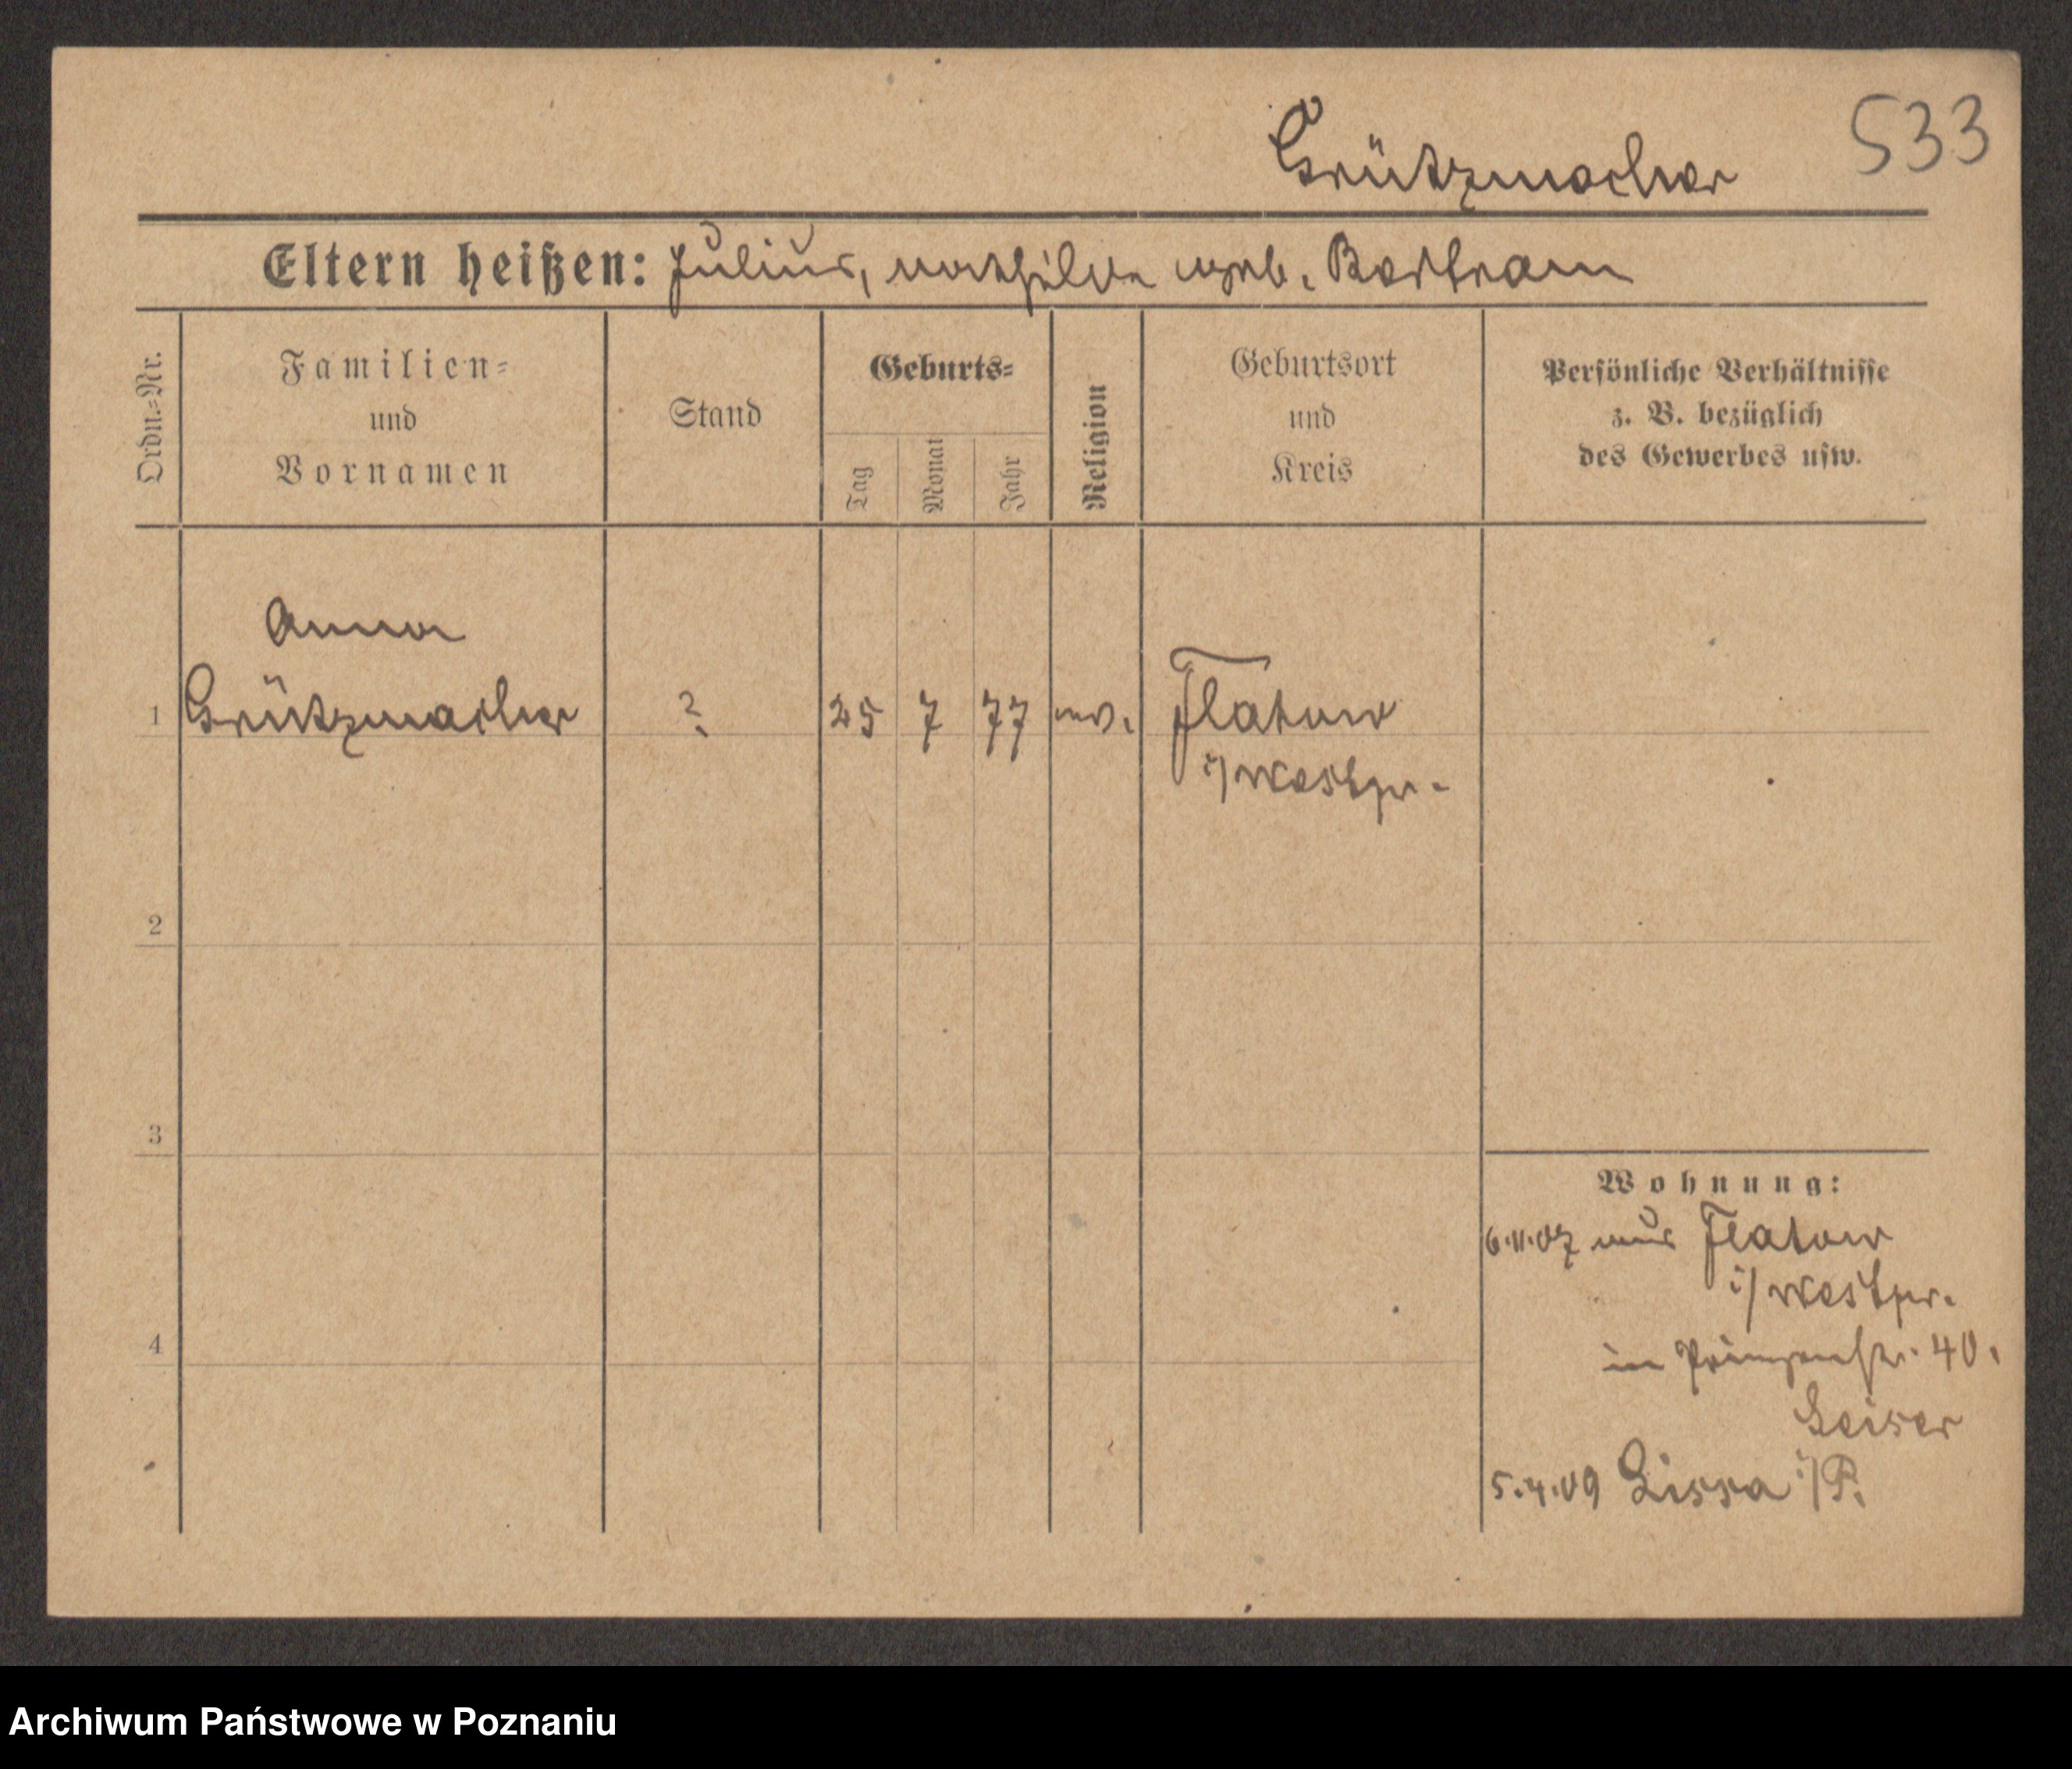 533
Grützmacher
Eltern heißen: Julius, Mathilde geb. Bertram
Ordn.=Nr.
Familien=
und
Vornamen
Stand
Geburts=
Tag
Monat
Jahr
Religion
Geburtsort
und
Kreis
Persönliche Verhältnisse
z. B. bezüglich
des Gewerbes usw.
Anna
1 Grützmacher ? 25 7 77 ev. Flatow
i/Westpr.
2
3
4
Wohnung:
6.11.07 aus Flatow
i/Westpr.
in Prinzenstr. 40.
Geiser
5.4.09 Lissa i/P.
Archiwum Państwowe w Poznaniu